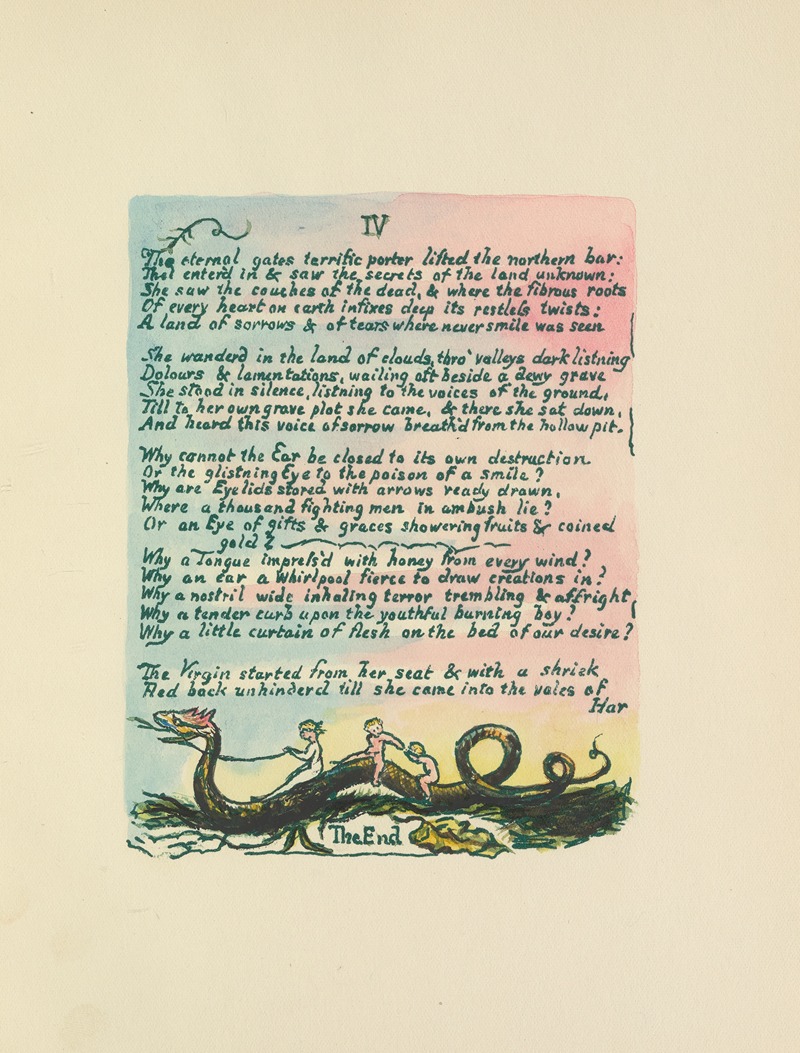 IV
The eternal gates terrific porter lifted the northern bar:
Thel enter'd in & saw the secrets of the land unknown:
She saw the couches of the dead, & where the fibrous roots
Of every heart on earth infixes deep its restless twists:
A land of sorrows & of tears where never smile was seen
She wanderd in the land of clouds thro' valleys dark listning
Dolours & lamentations, wailing oft beside a dewy grave
She stood in silence, listning to the voices of the ground,
Till to her own grave plot she came, & there she sat down,
And heard this voice of sorrow breath'd from the hollow pit.
Why cannot the Ear be closed to its own destruction
Or the glistning Eye to the poison of a smile?
Why are Eyelids stored with arrows ready drawn,
Where a thousand fighting men in ambush lie?
Or an Eye of gifts & graces showering fruits & coined
gold?
Why a Tongue impress'd with honey from every wind?
Why an ear a Whirlpool fierce to draw creations in?
Why a nostril wide inhaling terror trembling & affright,
Why a tender curb upon the youthful burning boy?
Why a little curtain of flesh on the bed of our desire?
The Virgin started from her seat & with a shriek
Fled back unhinderd till she came into the vales of
Har
The End